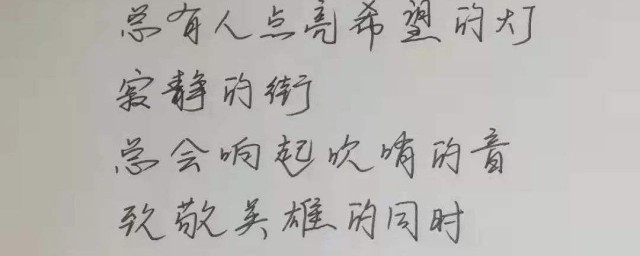 总有人点亮希望的灯
寂静的街
总会响起吹哨的音
致敬英雄的同时